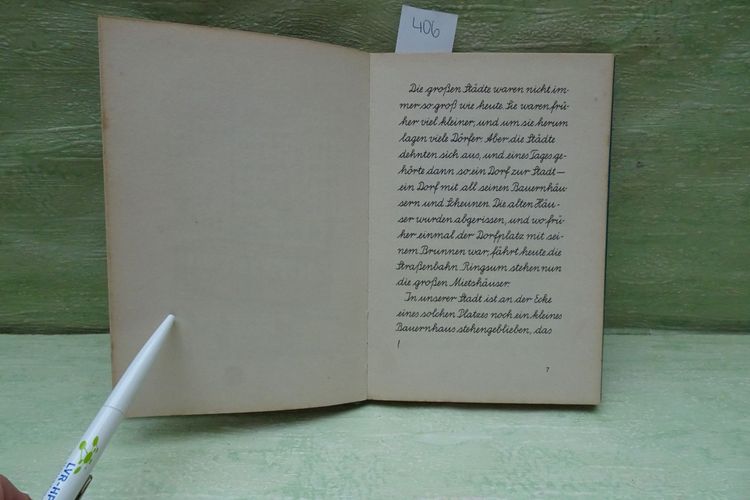 406
Die großen Städte waren nicht im-
mer so groß wie heute. Sie waren frü-
her viel kleiner, und um sie herum
lagen viele Dörfer. Aber die Städte
dehnten sich aus, und eines Tages ge-
hörte dann so ein Dorf zur Stadt —
ein Dorf mit all seinen Bauernhäu-
sern und Scheunen. Die alten Häu-
ser wurden abgerissen, und wo frü-
her einmal der Dorfplatz mit sei-
nem Brunnen war, fährt heute die
Straßenbahn. Ringsum stehen nun
die großen Mietshäuser.
In unserer Stadt ist an der Ecke
eines solchen Platzes noch ein kleines
Bauernhaus stehengeblieben, das
7
LVR-